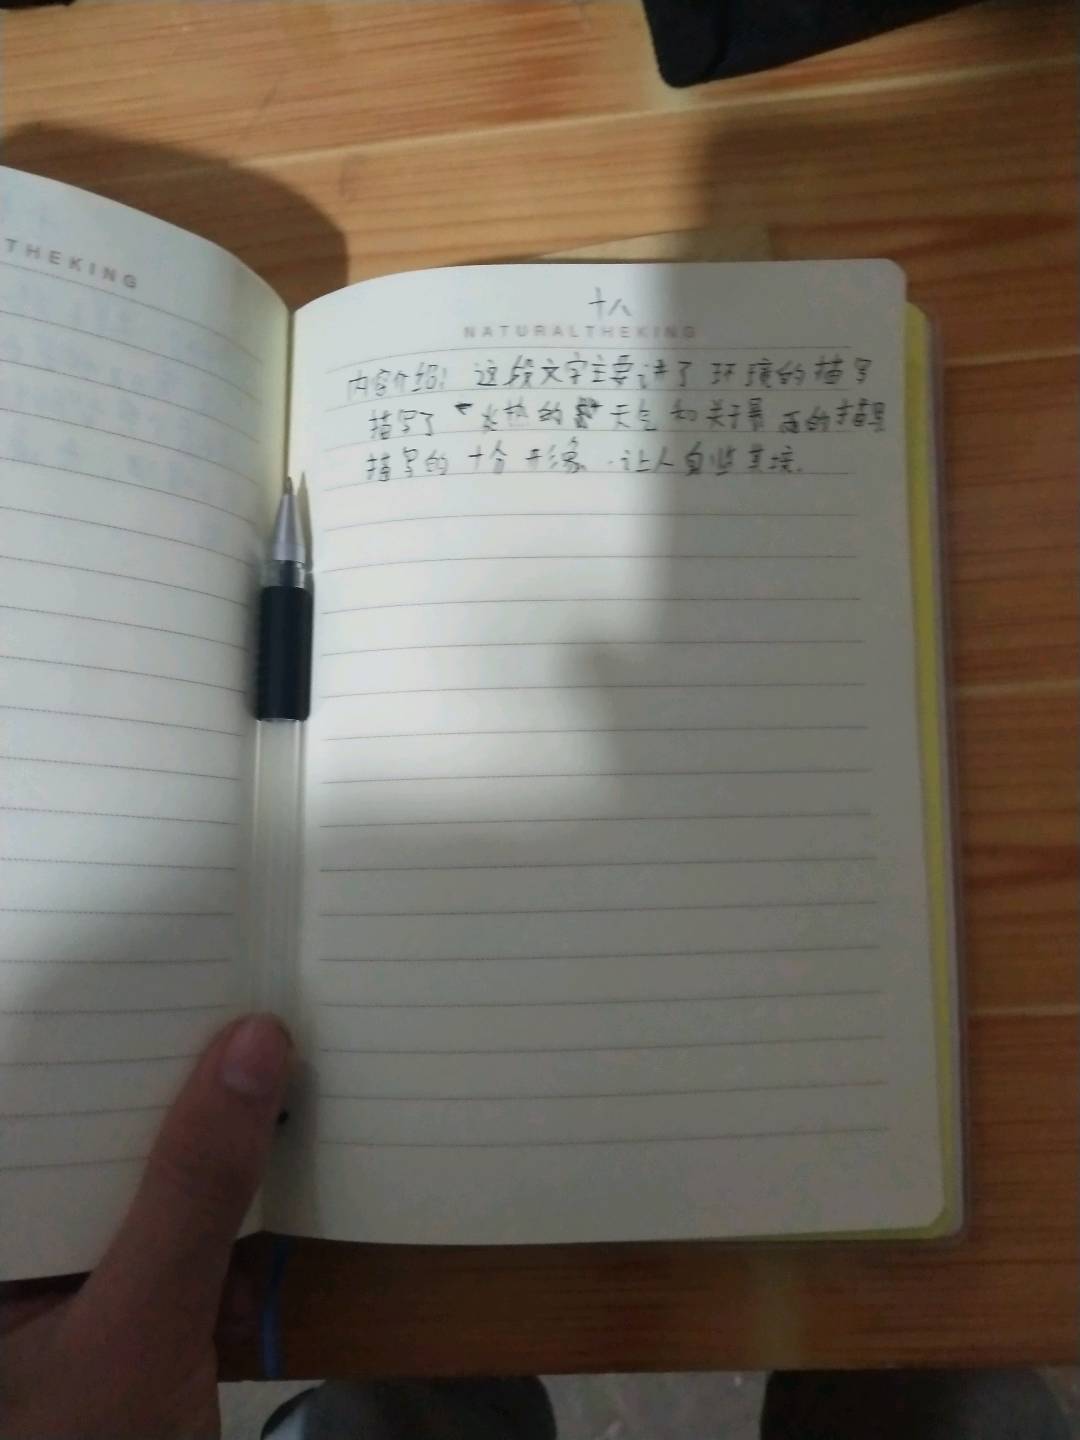 THEKING
十八
NATURALTHEKING
内容介绍: 这段文字主要讲了环境的描写
描写了 炎热的 天气和关于暴雨的描写
描写的十分形象.让人自临其境.